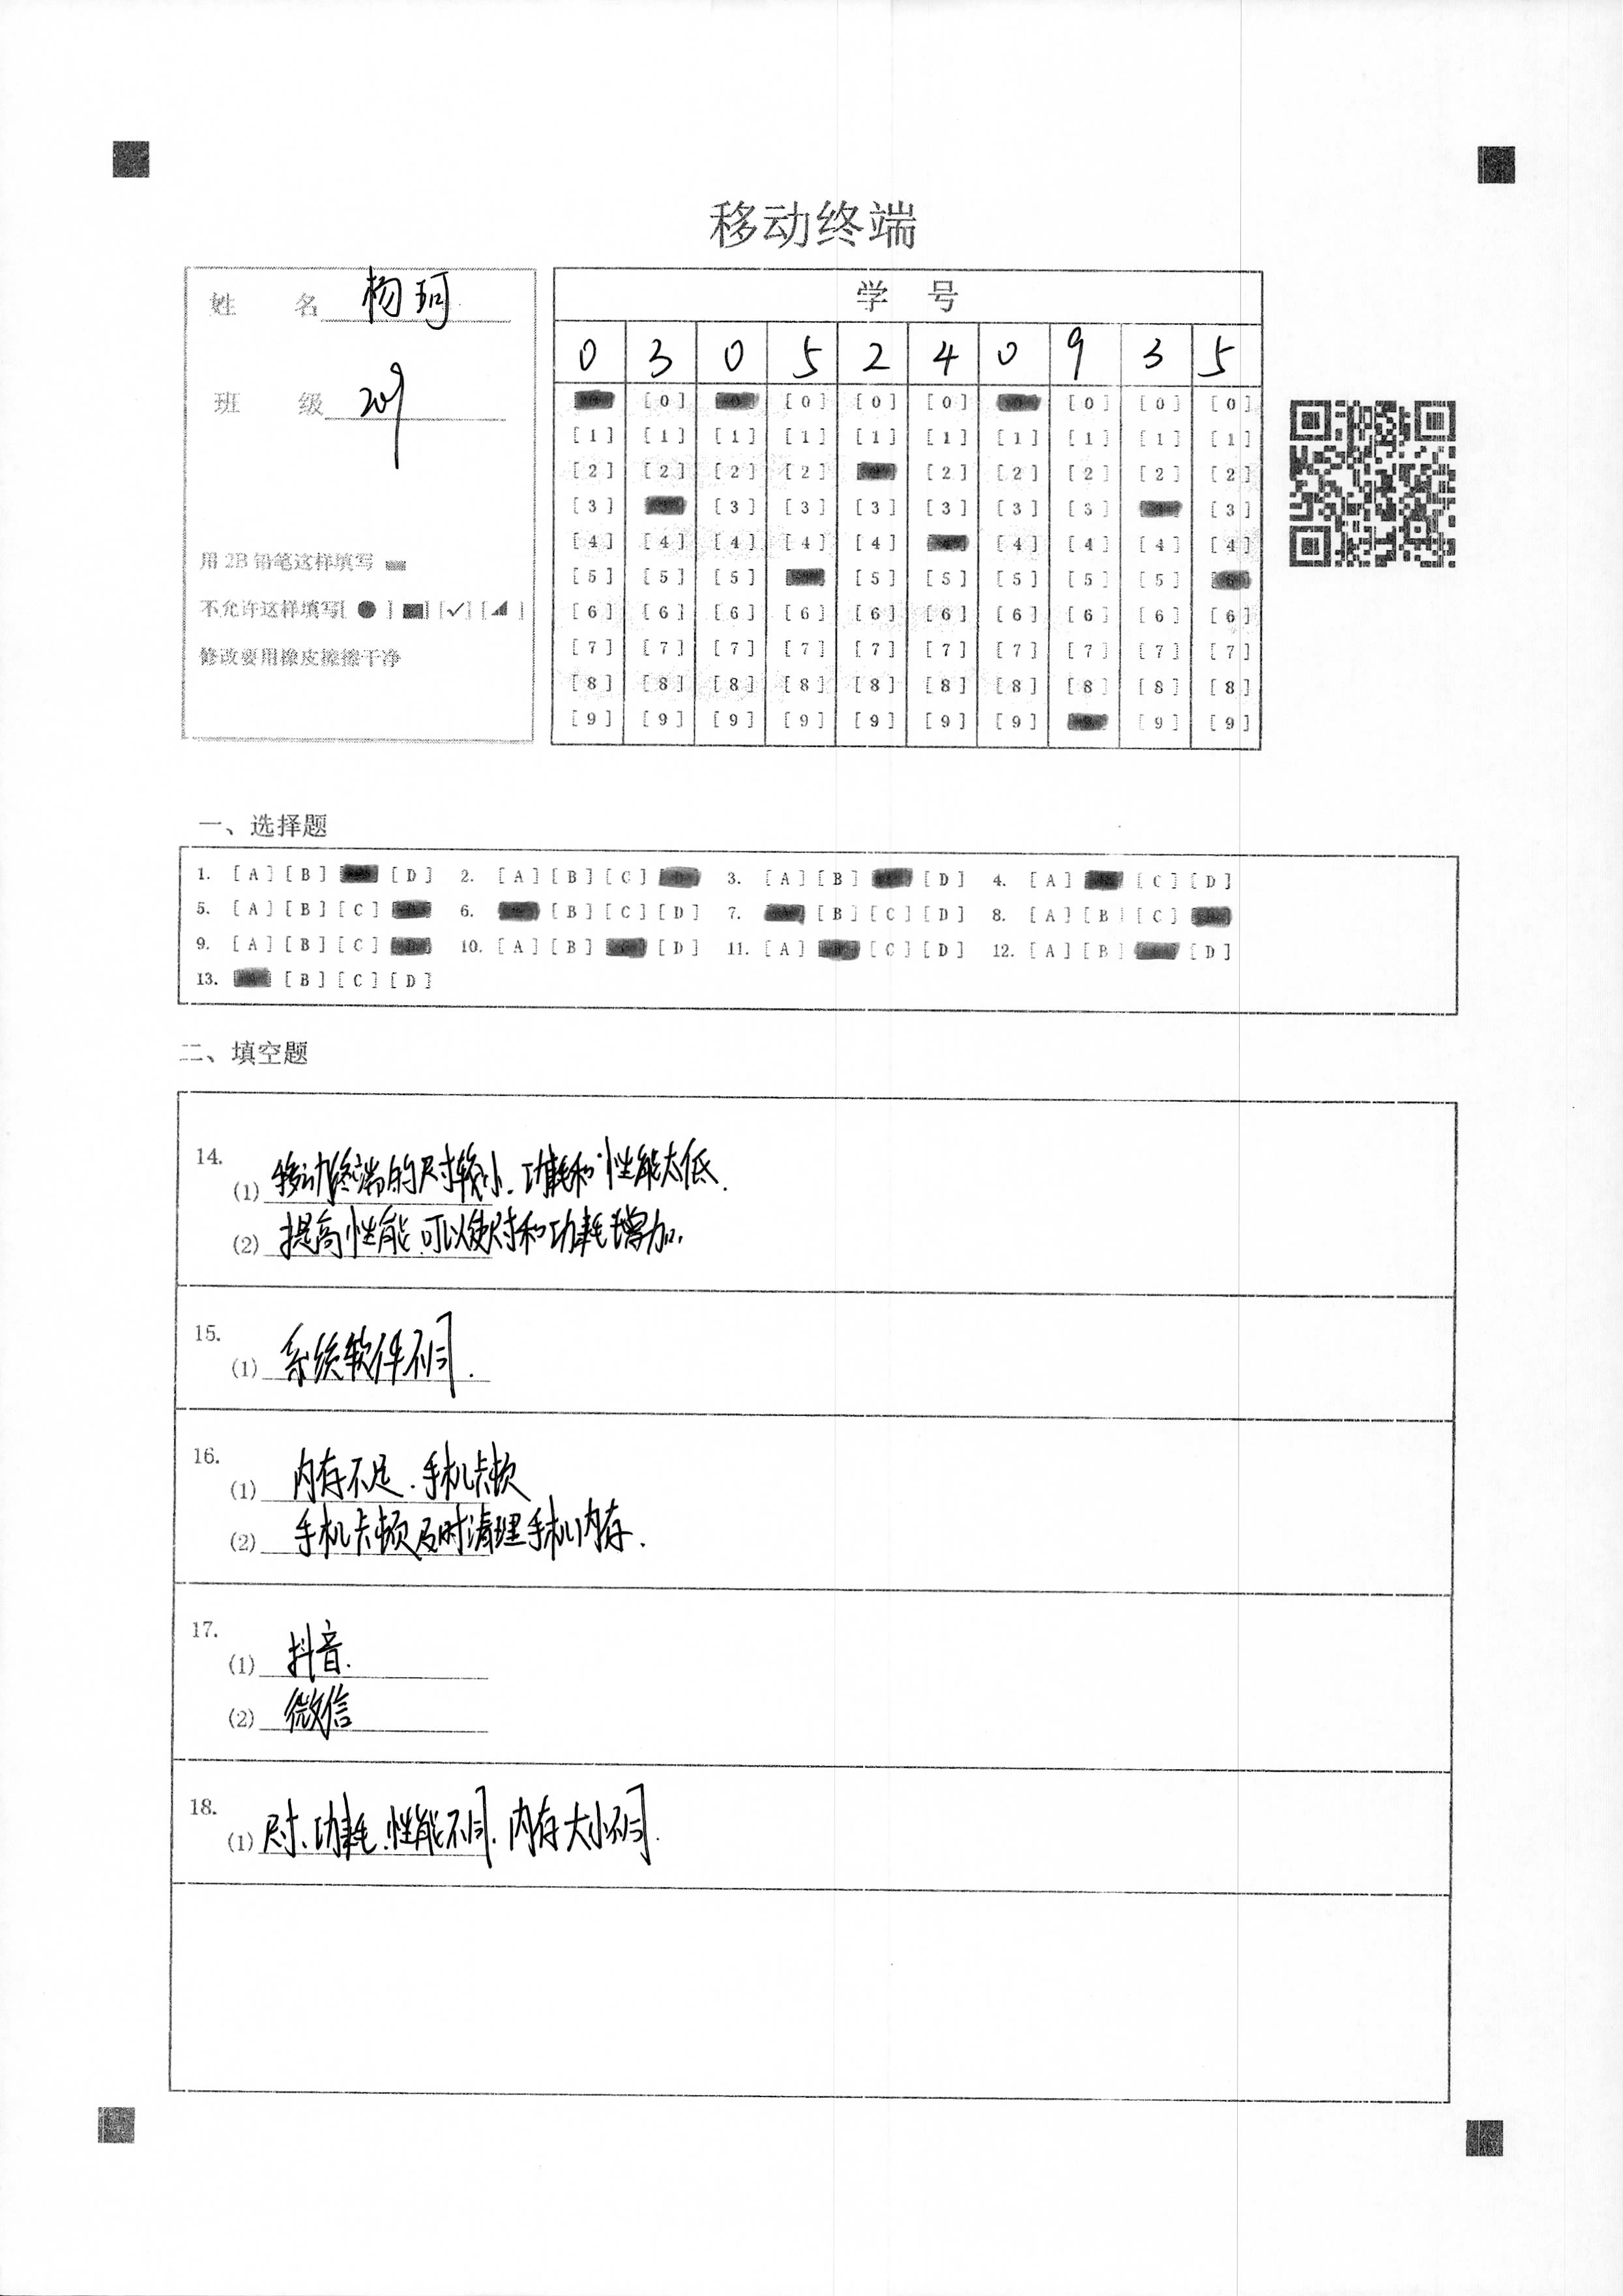 移动终端
姓 名 杨珂
班 级 209
用 2B 铅笔这样填写
不允许这样填写[ ● ] [ ■ ] [ ✓ ] [ ◢ ]
修改要用橡皮擦擦干净
学 号
0 3 0 5 2 4 0 9 3 5
[0] [0] [0] [0] [0] [0] [0]
[1] [1] [1] [1] [1] [1] [1] [1] [1] [1]
[2] [2] [2] [2] [2] [2] [2] [2] [2]
[3] [3] [3] [3] [3] [3] [3] [3]
[4] [4] [4] [4] [4] [4] [4] [4] [4]
[5] [5] [5] [5] [5] [5] [5] [5]
[6] [6] [6] [6] [6] [6] [6] [6] [6] [6]
[7] [7] [7] [7] [7] [7] [7] [7] [7] [7]
[8] [8] [8] [8] [8] [8] [8] [8] [8] [8]
[9] [9] [9] [9] [9] [9] [9] [9] [9]
一、选择题
1. [A] [B] [D] 2. [A] [B] [C] 3. [A] [B] [D] 4. [A] [C] [D]
5. [A] [B] [C] 6. [B] [C] [D] 7. [B] [C] [D] 8. [A] [B] [C]
9. [A] [B] [C] 10. [A] [B] [D] 11. [A] [C] [D] 12. [A] [B] [D]
13. [B] [C] [D]
二、填空题
14.
(1) 移动终端的尺寸较小.功耗和性能太低.
(2) 提高性能可以使尺寸和功耗增加.
15.
(1) 系统软件不同.
16.
(1) 内存不足.手机卡顿
(2) 手机卡顿及时清理手机内存.
17.
(1) 抖音.
(2) 微信
18.
(1) 尺寸、功耗.性能不同.内存大小不同.